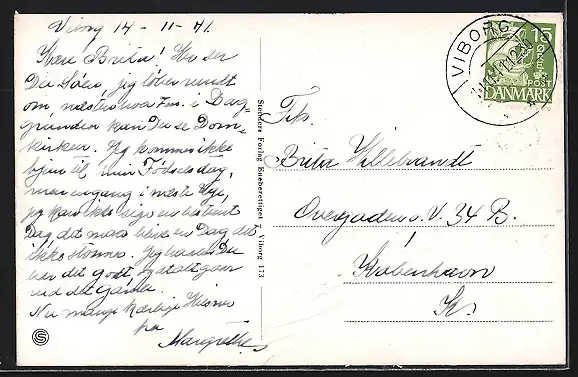 Viborg 14 - 11 - 41.
Kære Brita! Her ser
Du Søen, jeg løber rundt
om næsten hver
grunden kan Du se Dom-
kirken. Jeg kommer ikke
hjem til min Fødselsdag,
men engang i næste Uge,
jeg kan ikke sige en bestemt
Dag det maa blive en Dag det
ikke stormer. Jeg haaber Du
har det godt,
ved det gamle.
Nu mange kærlige Hilsner
fra
Margrethe
Stenders Forlag Eneberettiget Viborg 173
VIBORG
15
ØRE
POST
DANMARK
Frk.
Brita Hillebrandt
Overgaden o. V. 34 B.
København
K.
S